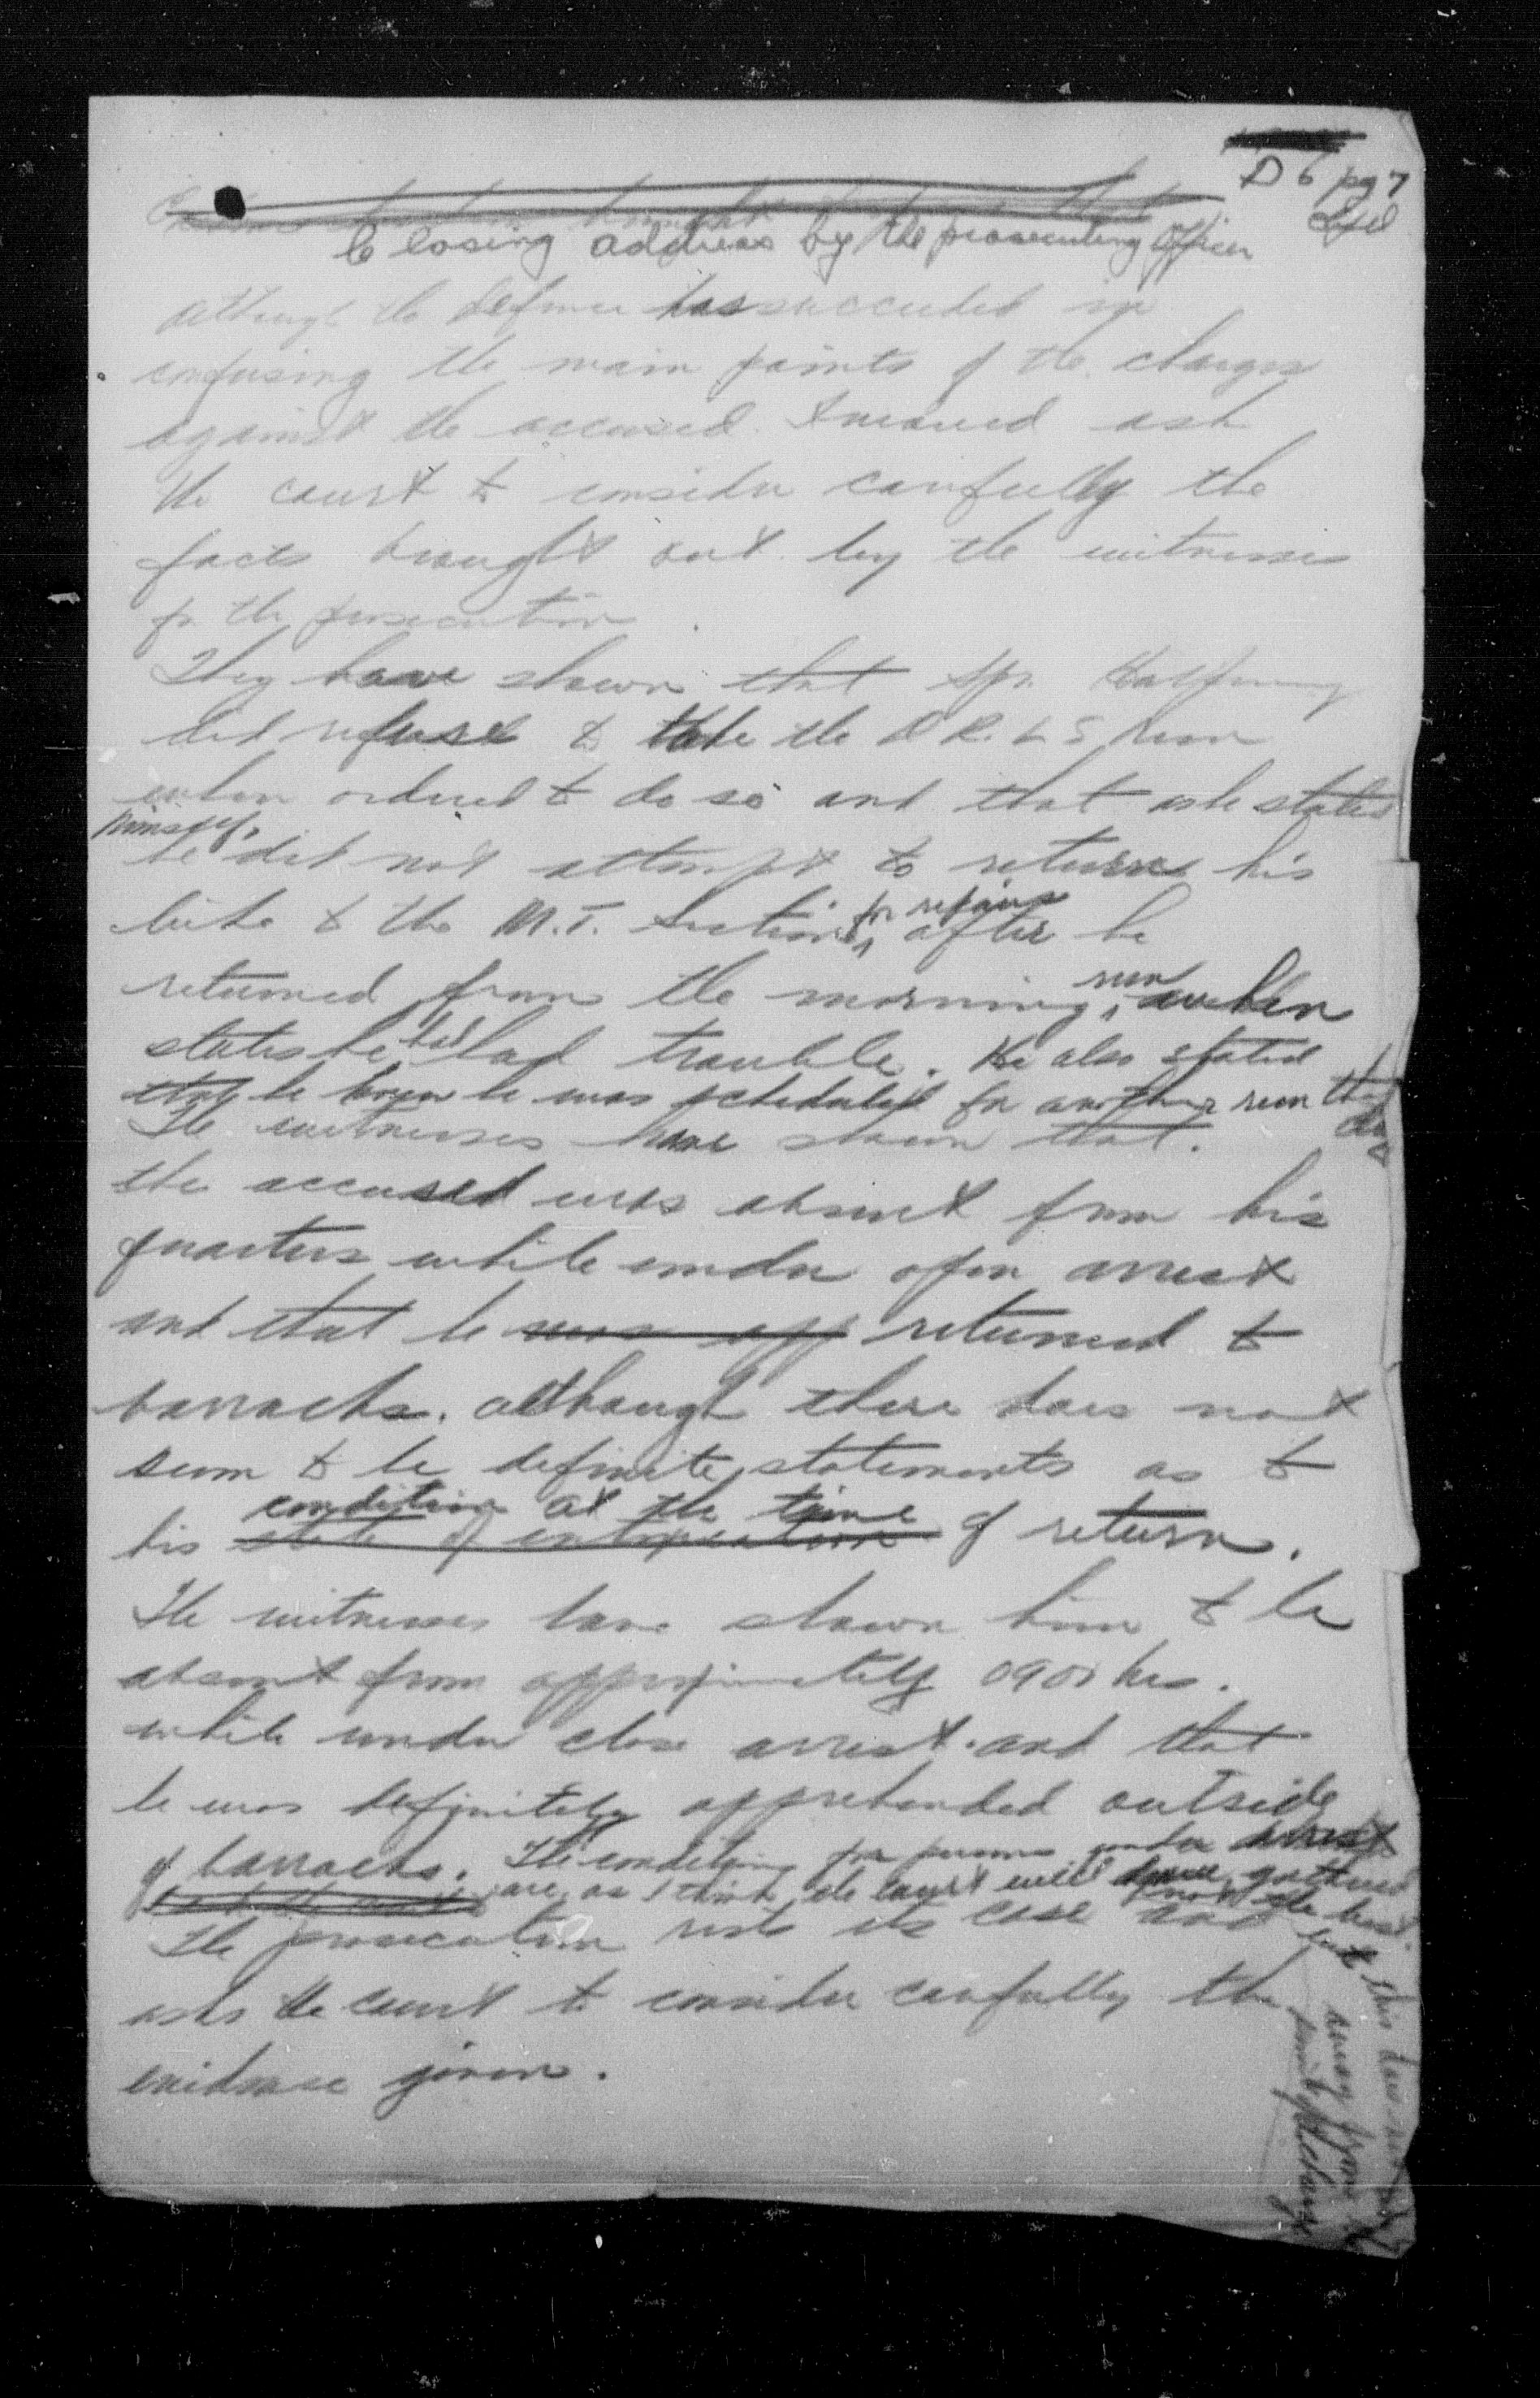 D 6 pg 7
Closing address by the prosecuting officer
Although the defence has succeeded in
confusing the main points of the charges
against the accused. I would ask
the court to consider carefully the
facts brought out by the witnesses
for the prosecution
They have shown that Spr.
did refuse to take the D.R.L.S run
when ordered to do so and that as he stated
himself,
he did not attempt to return his
bike to the M.T. Section for repairs after he
returned from the morning run, when
states he had had trouble. He also stated
that he knew he was scheduled for another run that day
The witnesses have shown that.
the accused was absent from his
quarters while under open arrest
and that he was app returned to
barracks. although there does not
seem to be definite statements as to
condition at the time
his state of intoxication of return.
The witnesses have shown him to be
absent from approximately 0900 hrs.
while under close arrest. and that
he was definitely apprehended outside
of barracks. The conditions for persons under arrest
are, as I think the court will have gathered
not the best
The prosecution rests its case and
asks the court to consider carefully the
evidence given.
but this does not
away from